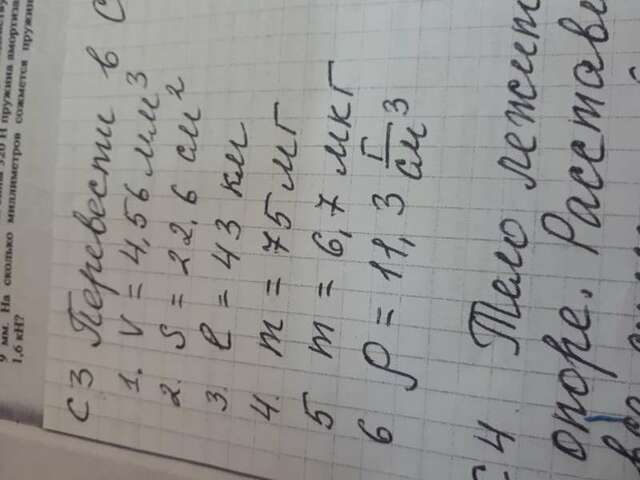 9 мм. На сколько миллиметров сожмется пружин
1,6 кН?
С3 Перевести в С
1. V = 4,56 мм³
2. S = 22,6 см²
3. ℓ = 43 км
4. m = 75 мг
5 m = 6,7 мкг
6 ρ = 11,3 г/см³
С4 Тело лежит
опоре. Расстави